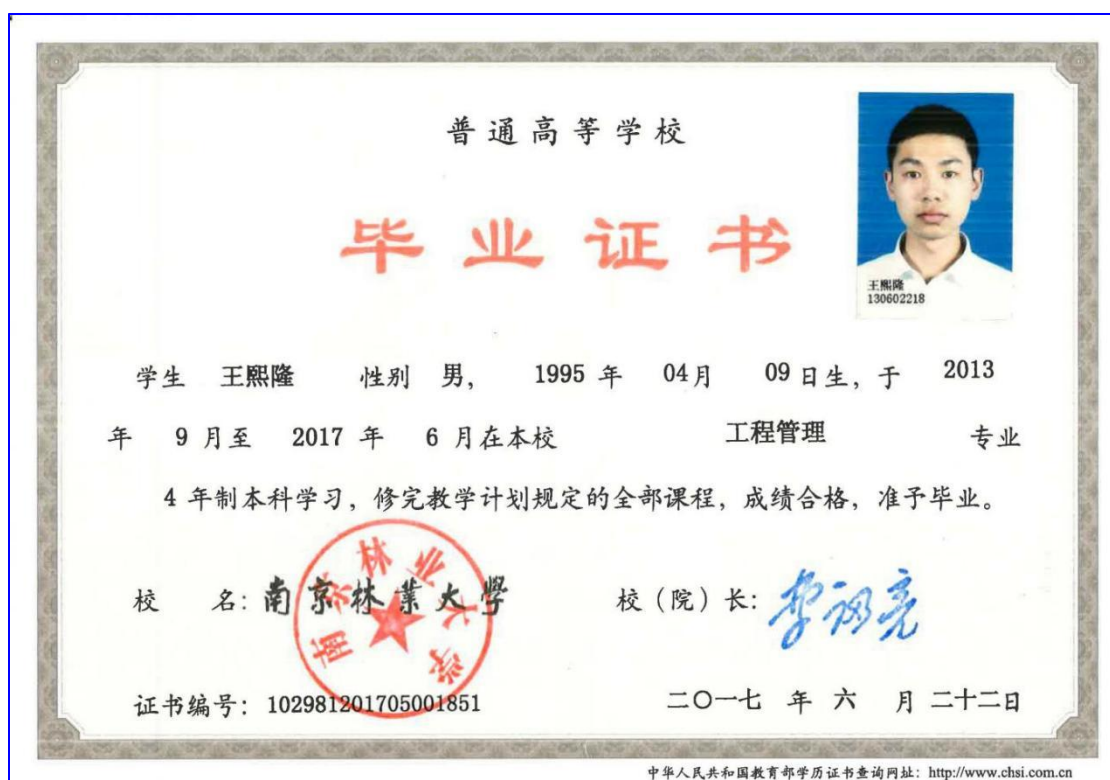 普通高等学校
毕业证书
王熙隆
130602218
学生 王熙隆 性别 男， 1995 年 04月 09日生，于 2013
年 9 月至 2017 年 6 月在本校 工程管理 专业
4 年制本科学习，修完教学计划规定的全部课程，成绩合格，准予毕业。
校 名：南京林業大學 校（院）长：
南京林业大学
证书编号：102981201705001851 二〇一七 年 六 月 二十二日
中华人民共和国教育部学历证书查询网址：http://www.chsi.com.cn